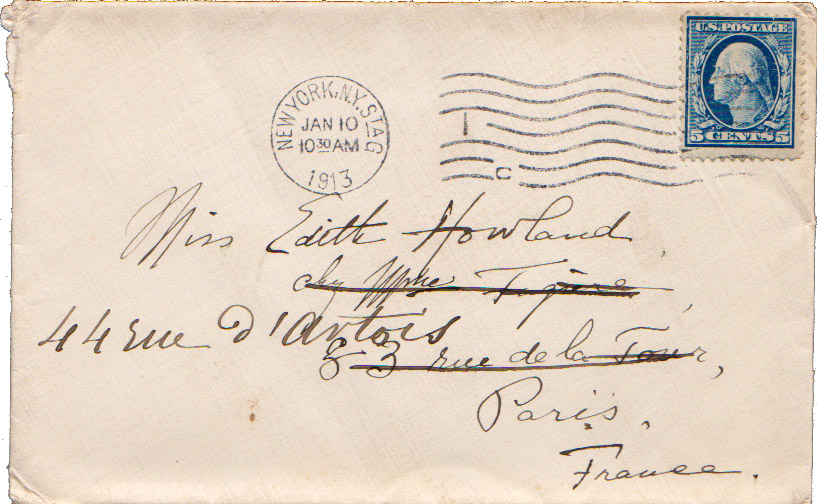 U.S. POSTAGE
5 CENTS 5
NEW YORK, N.Y. STA. G
JAN 10
10 30 AM
1913
C
Miss Edith Howland,
chez Mme
44 rue d'Artois
83 rue de la Tour,
Paris.
France.